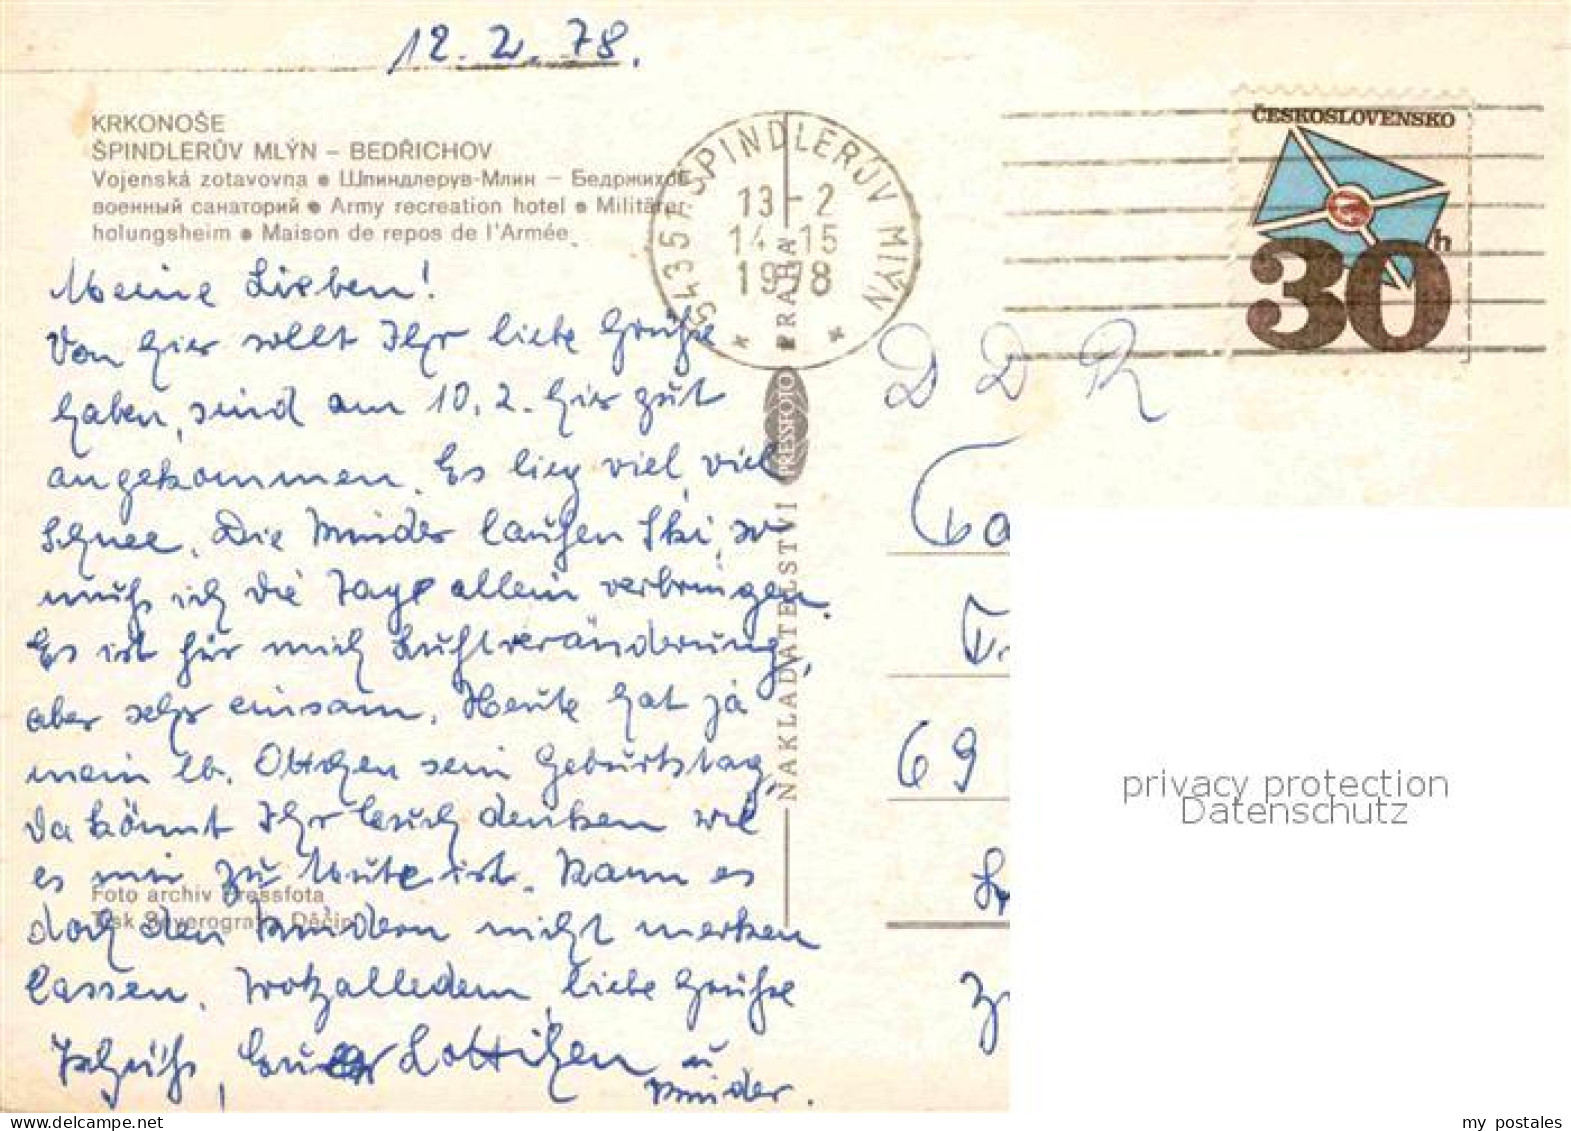 12.2.78.
KRKONOŠE
ŠPINDLERŮV MLÝN – BEDŘICHOV
Vojenská zotavovna ● Шпиндлерув-Млин – Бедржихов
военный санаторий ● Army recreation hotel ● Militärer-
holungsheim ● Maison de repos de l'Armée
543 51 ŠPINDLERŮV MLÝN
13-2
14-15
1978
PRAHA
ČESKOSLOVENSKO
30 h
Meine Lieben!
Von hier sollt Ihr liebe Grüße
haben, sind am 10.2. hier gut
angekommen. Es lieg viel, viel
Schnee. Die Kinder laufen Ski, so
muß ich die Tage allein verbringen.
Es ist für mich Luftveränderung,
aber sehr einsam. Heute hat ja
mein lb. Ottchen sein Geburtstag,
da könnt Ihr Euch denken wie
es mir zu Mute ist. Kann es
doch den Kindern nicht merken
lassen. Trotzalledem, liebe Grüße
Tschüß, Euer Lottchen u
Kinder.
Foto archiv Pressfota
Tisk Severografia Děčín
NAKLADATELSTVÍ PRESSFOTO
DDR
69
privacy protection
Datenschutz
my_postales